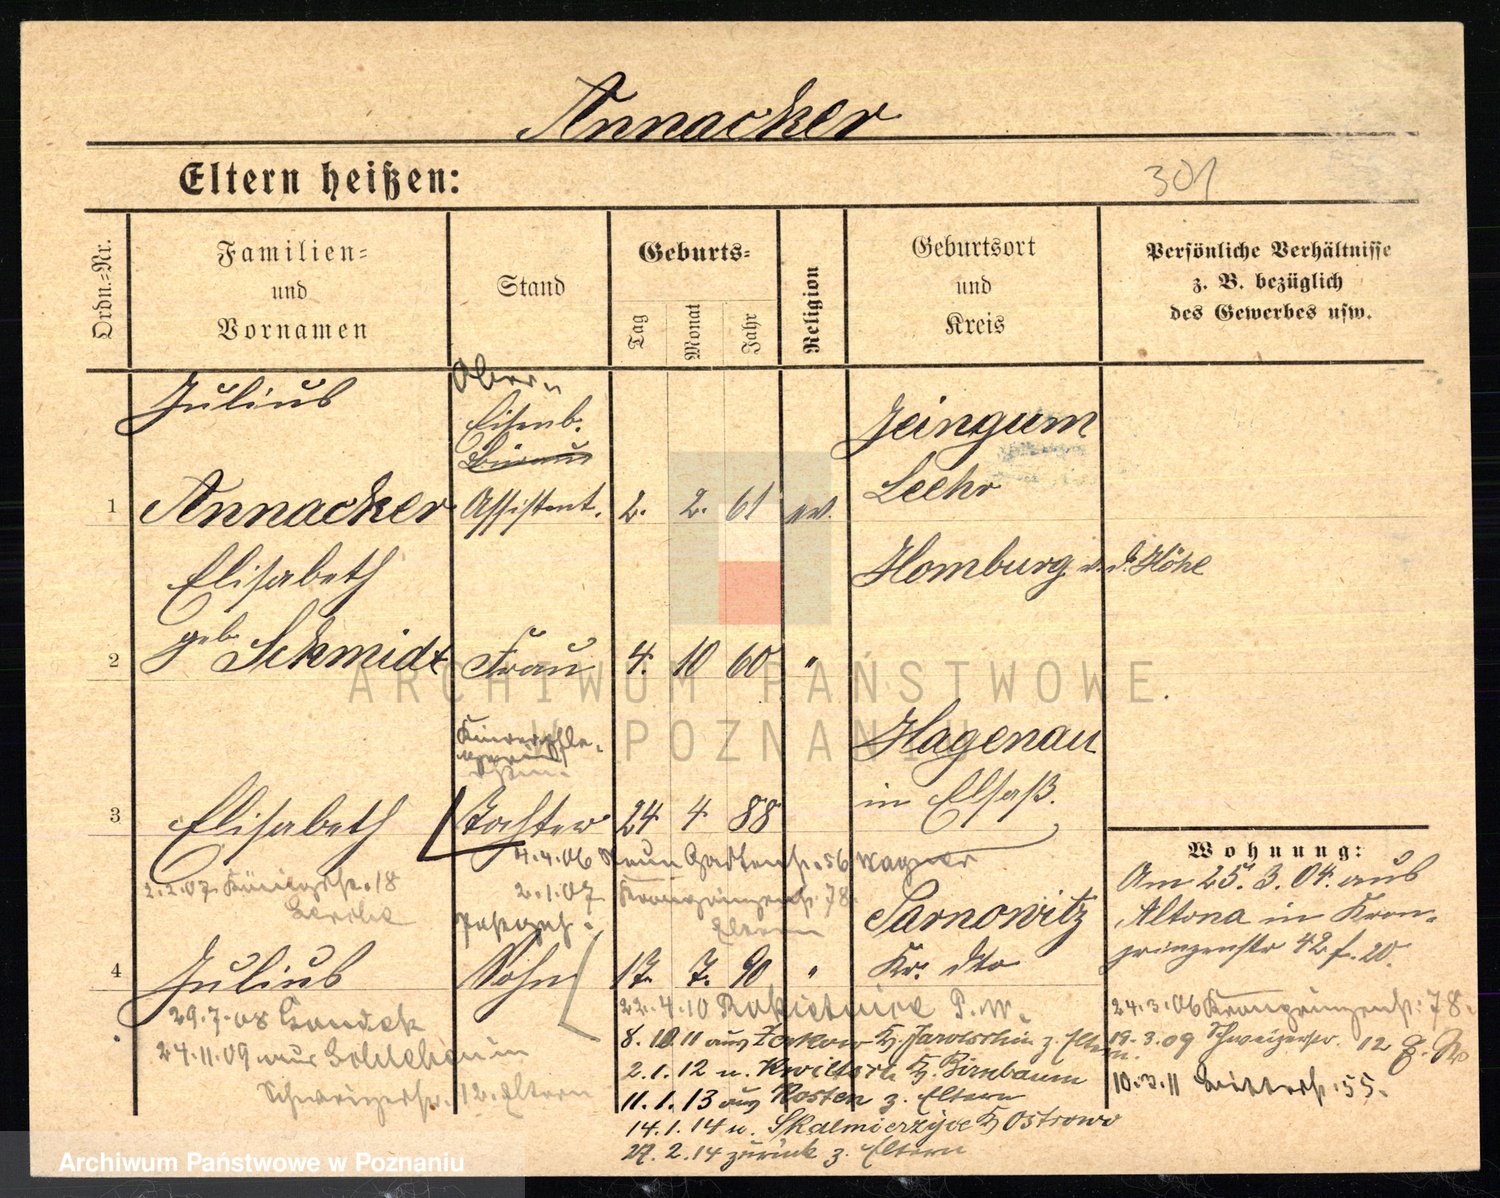 Annacker
Eltern heißen:
301
Ordn.=Nr.
Familien=
und
Vornamen
Stand
Geburts=
Tag
Monat
Jahr
Religion
Geburtsort
und
Kreis
Persönliche Verhältnisse
z. B. bezüglich
des Gewerbes usw.
Julius
Ober
Eisenb.
Büreau
Jeingum
Leehr
1 Annacker Assistent. 2. 2. 61 ev.
Elisabeth
Homburg v. d. Höhe
geb
2 Schmidt Frau 4. 10 60 "
Hagenau
in Elsaß.
3 Elisabeth Tochter 24 4 88
4.4.06 Neue Gartenstr. 56 Wagner
2.2.07 Königstr. 18
2.1.07 Kronprinzenstr. 78
Eltern
Sarnowitz
4 Julius Sohn 17. 7. 90 "
Kr. dto
Wohnung:
Am 25.3.04. aus
Altona in Kron-
prinzenstr 42 f. 20.
24.3.06 Kronprinzenstr. 78.
19.3.09 Schweizerstr. 12
10.3.11 Ritterstr. 55.
29.7.08
24.11.09 aus
Schweizerstr. 12. Eltern
22.4.10 Rokietnice P. W.
8.10.11 aus Zerkow Kr. Jarotschin z. Eltern
2.1.12 n. Kwiltsch Kr. Birnbaum
11.1.13 aus Kosten z. Eltern
14.1.14 n. Skalmierzyce Kr Ostrowo
27.2.14 zurück z. Eltern
ARCHIWUM PAŃSTWOWE
W POZNANIU
Archiwum Państwowe w Poznaniu